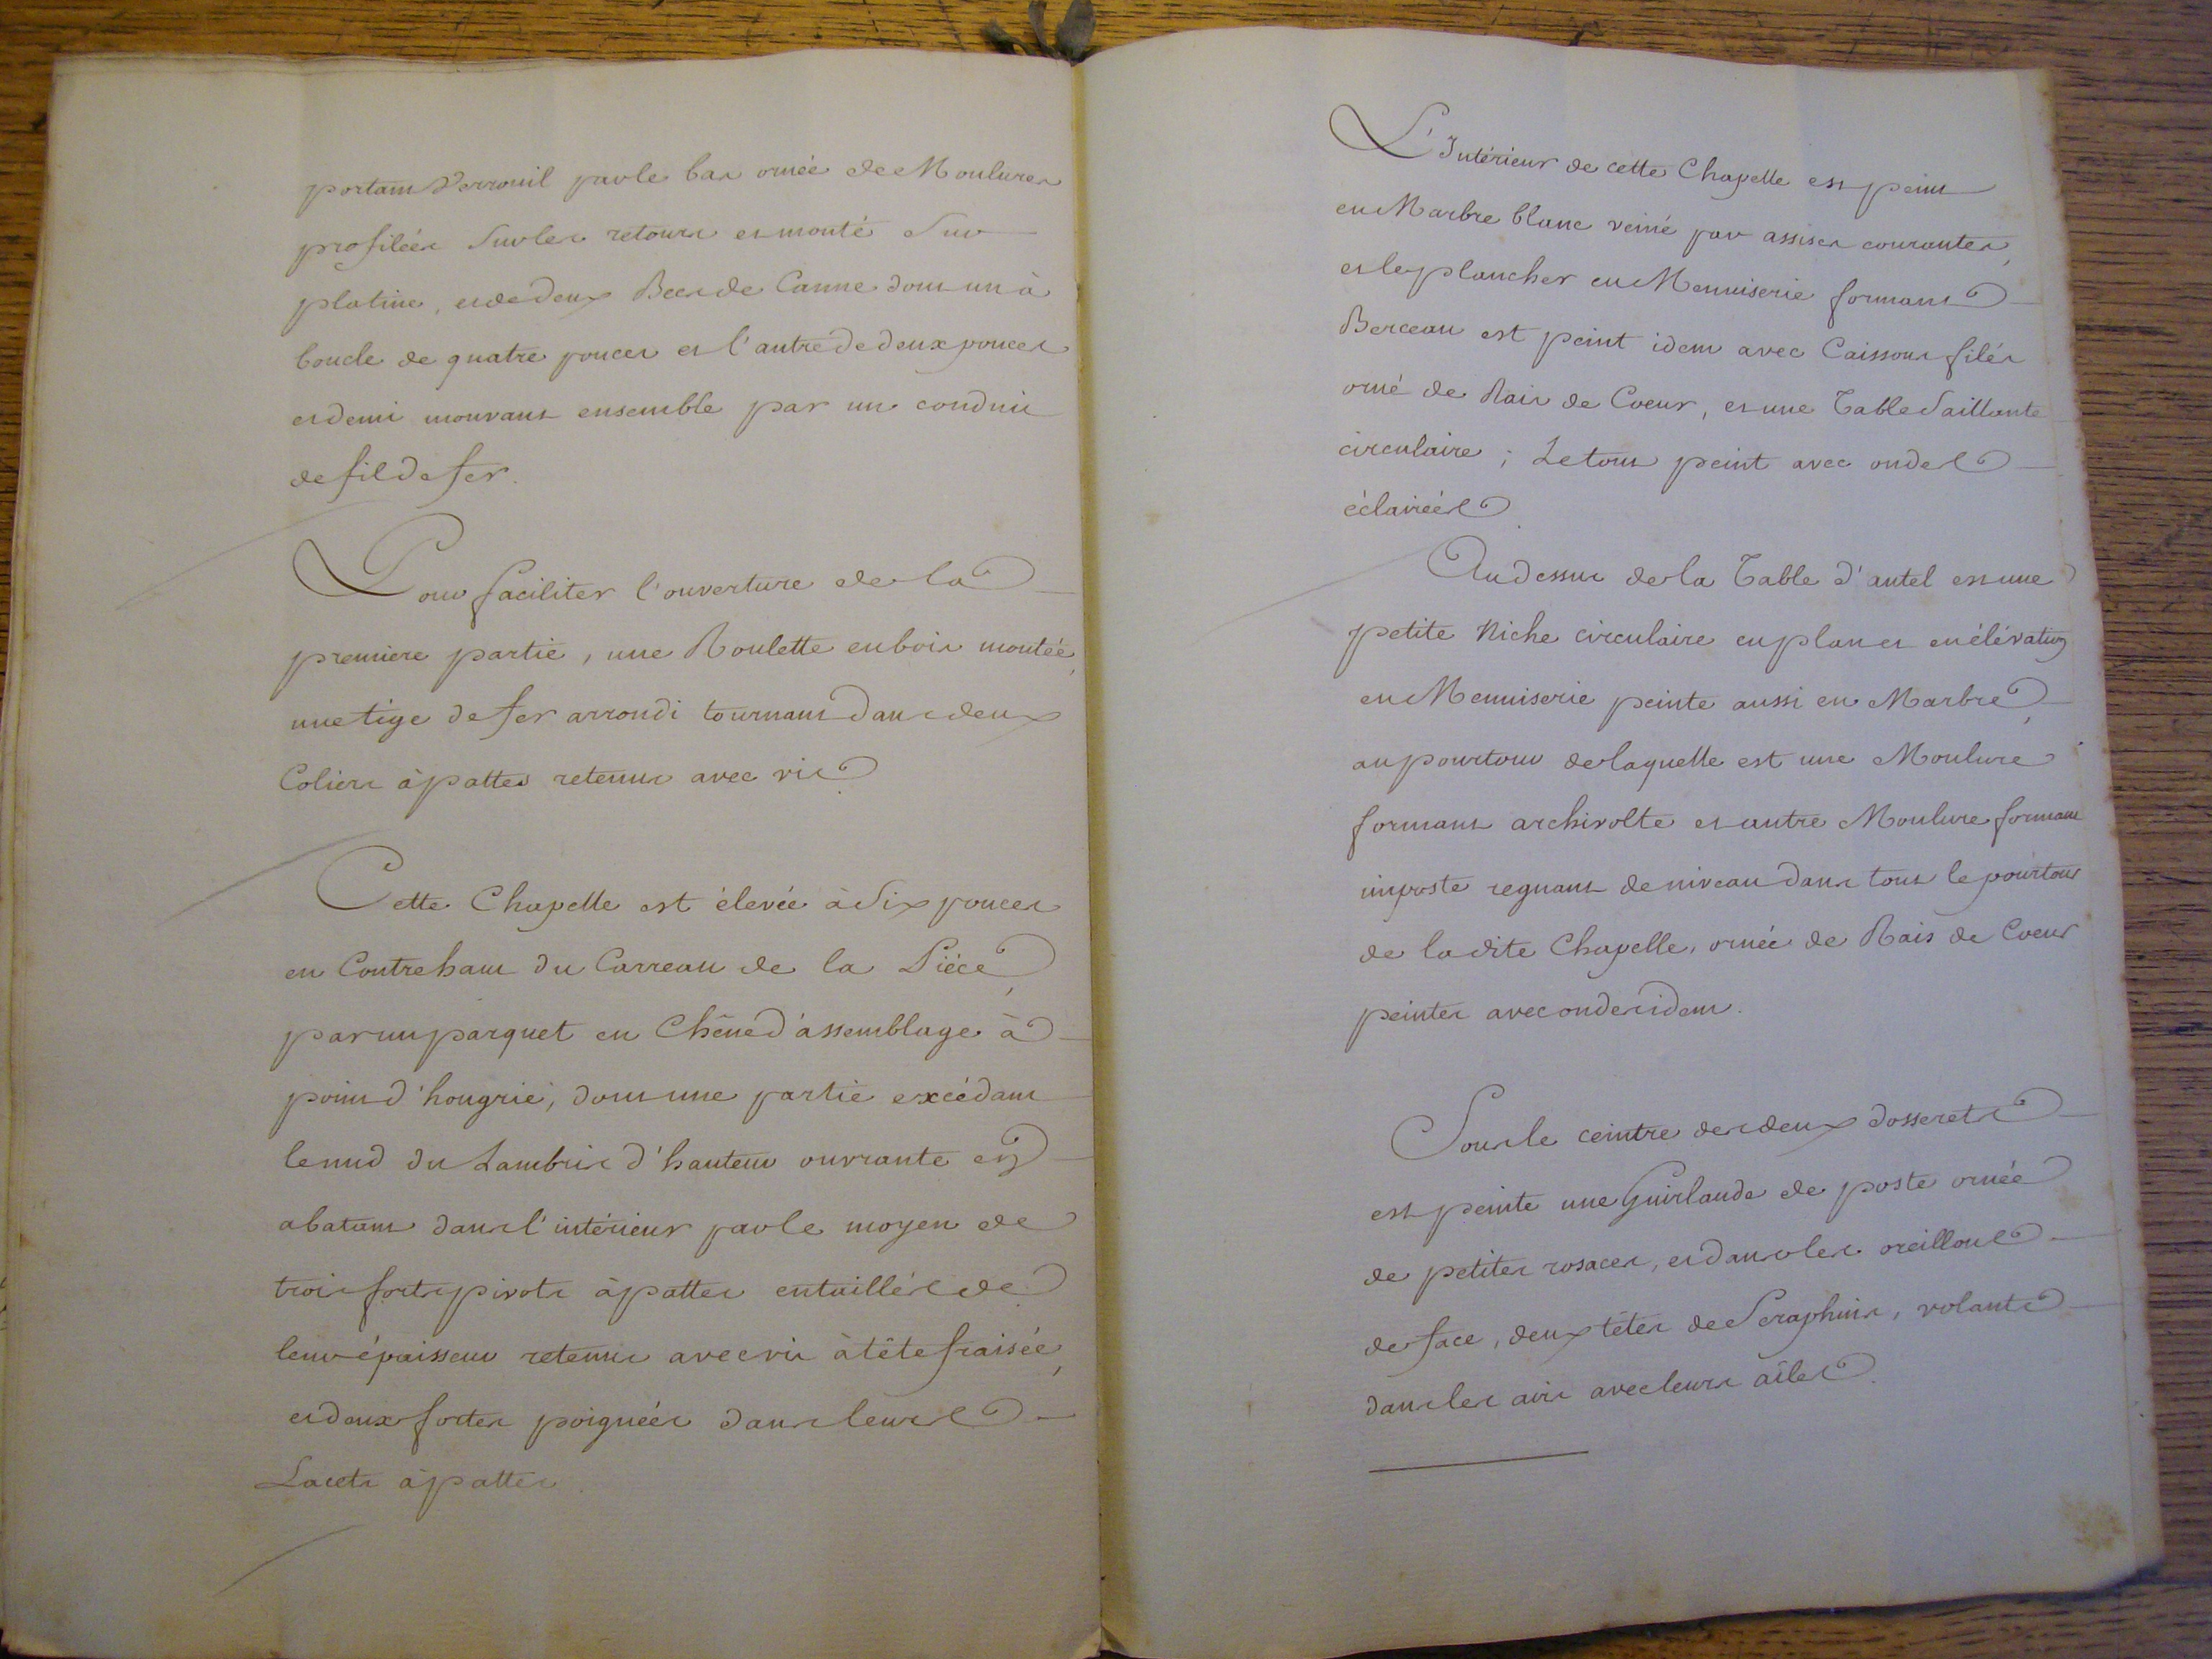 portant Verrouil par le bas ornée de Moulures
profilées sur les retours et monté sur
platine, et de deux Becs de Canne dont un à
boucle de quatre pouces et l'autre de deux pouces
et demi mouvant ensemble par un conduit
de fil de fer.
Pour faciliter l'ouverture de la
premiere partie, une Roulette en bois montée,
une tige de fer arrondi tournant dans deux
Coliers à pattes retenus avec vis.
Cette Chapelle est élevée à Six pouces
en Contrehaut du Carreau de la Piéce,
par un parquet en Chêne d'assemblage à
point d'hongrie, dont une partie excédant
le nud du Lambris d'hauteur ouvrante en
abatant dans l'intérieur par le moyen de
trois forts pivots à pattes entaillés de
leur épaisseur retenus avec vis à tête fraisée,
et deux fortes poignées dans leurs
Lacets à pattes.
L'Intérieur de cette Chapelle est peint
en Marbre blanc veiné par assises courantes,
et le plancher en Menuiserie formant
Berceau est peint idem avec Caissons filés
orné de Rais de Coeur, et une Table Saillante
circulaire; Le tout peint avec ondes
éclairées.
Au dessus de la Table d'autel est une
petite Niche circulaire en plan et en élévation
en Menuiserie peinte aussi en Marbre,
au pourtour de laquelle est une Moulure
formant archivolte et autre Moulure formant
imposte regnant de niveau dans tout le pourtour
de la dite Chapelle, ornée de Rais de Coeur
peintes avec ondes idem.
Sous le ceintre des deux dosserets
est peinte une Guirlande de poste ornée
de petites rosaces, et dans les oreillons
de face, deux têtes de Seraphins, volants
dans les airs avec leurs aîles.